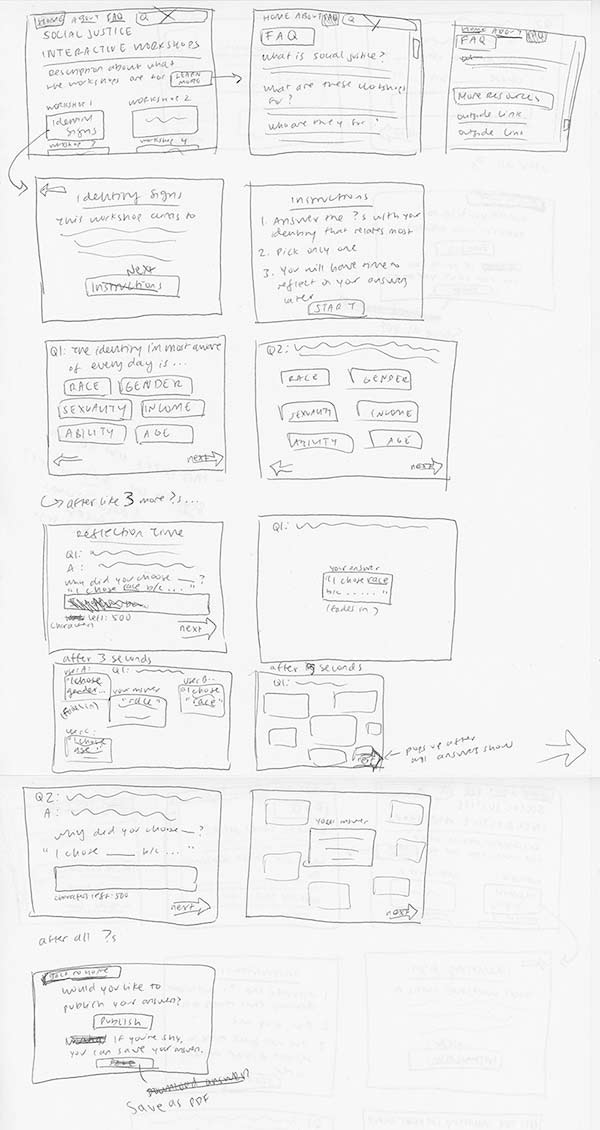 HOME ABOUT FAQ Q
SOCIAL JUSTICE
INTERACTIVE WORKSHOPS
Description about what
the workshops are for LEARN
MORE
WORKSHOP 1 WORKSHOP 2
Identity
Signs
workshop 4
HOME ABOUT FAQ Q
FAQ
What is social justice?
What are these workshops
for?
who are they for?
HOME ABOUT FAQ
FAQ
More Resources
outside link
outside link
Identity Signs
This workshop aims to
Next
Instructions
Instructions
1. Answer the ?s with your
identity that relates most
2. Pick only one
3. You will have time to
reflect on your answers
later
START
Q1: The identity I'm most aware
of every day is...
RACE GENDER
SEXUALITY INCOME
ABILITY AGE
next
Q2:
RACE GENDER
SEXUALITY INCOME
ABILITY AGE
next
after like 3 more ?s...
Reflection Time
Q1:
A:
Why did you choose __?
"I chose race b/c ... "
left: 500
characters
next
Q1:
your answer
"I chose race
b/c ...... "
(fades in)
after 3 seconds
user A: Q1:
"I chose
gender...
(fades in)
your answer
"race"
user B:
"I chose
race"
user C:
"I chose
age"
after 5 seconds
Q1:
next
pops up after
all answers show
Q2:
A:
Why did you choose __?
"I chose ___ b/c ... "
characters left: 500
next
your answer
next
after all ?s
Back to Home
would you like to
publish your answer?
PUBLISH
If you're shy,
you can save your answer.
download answer
Save as PDF